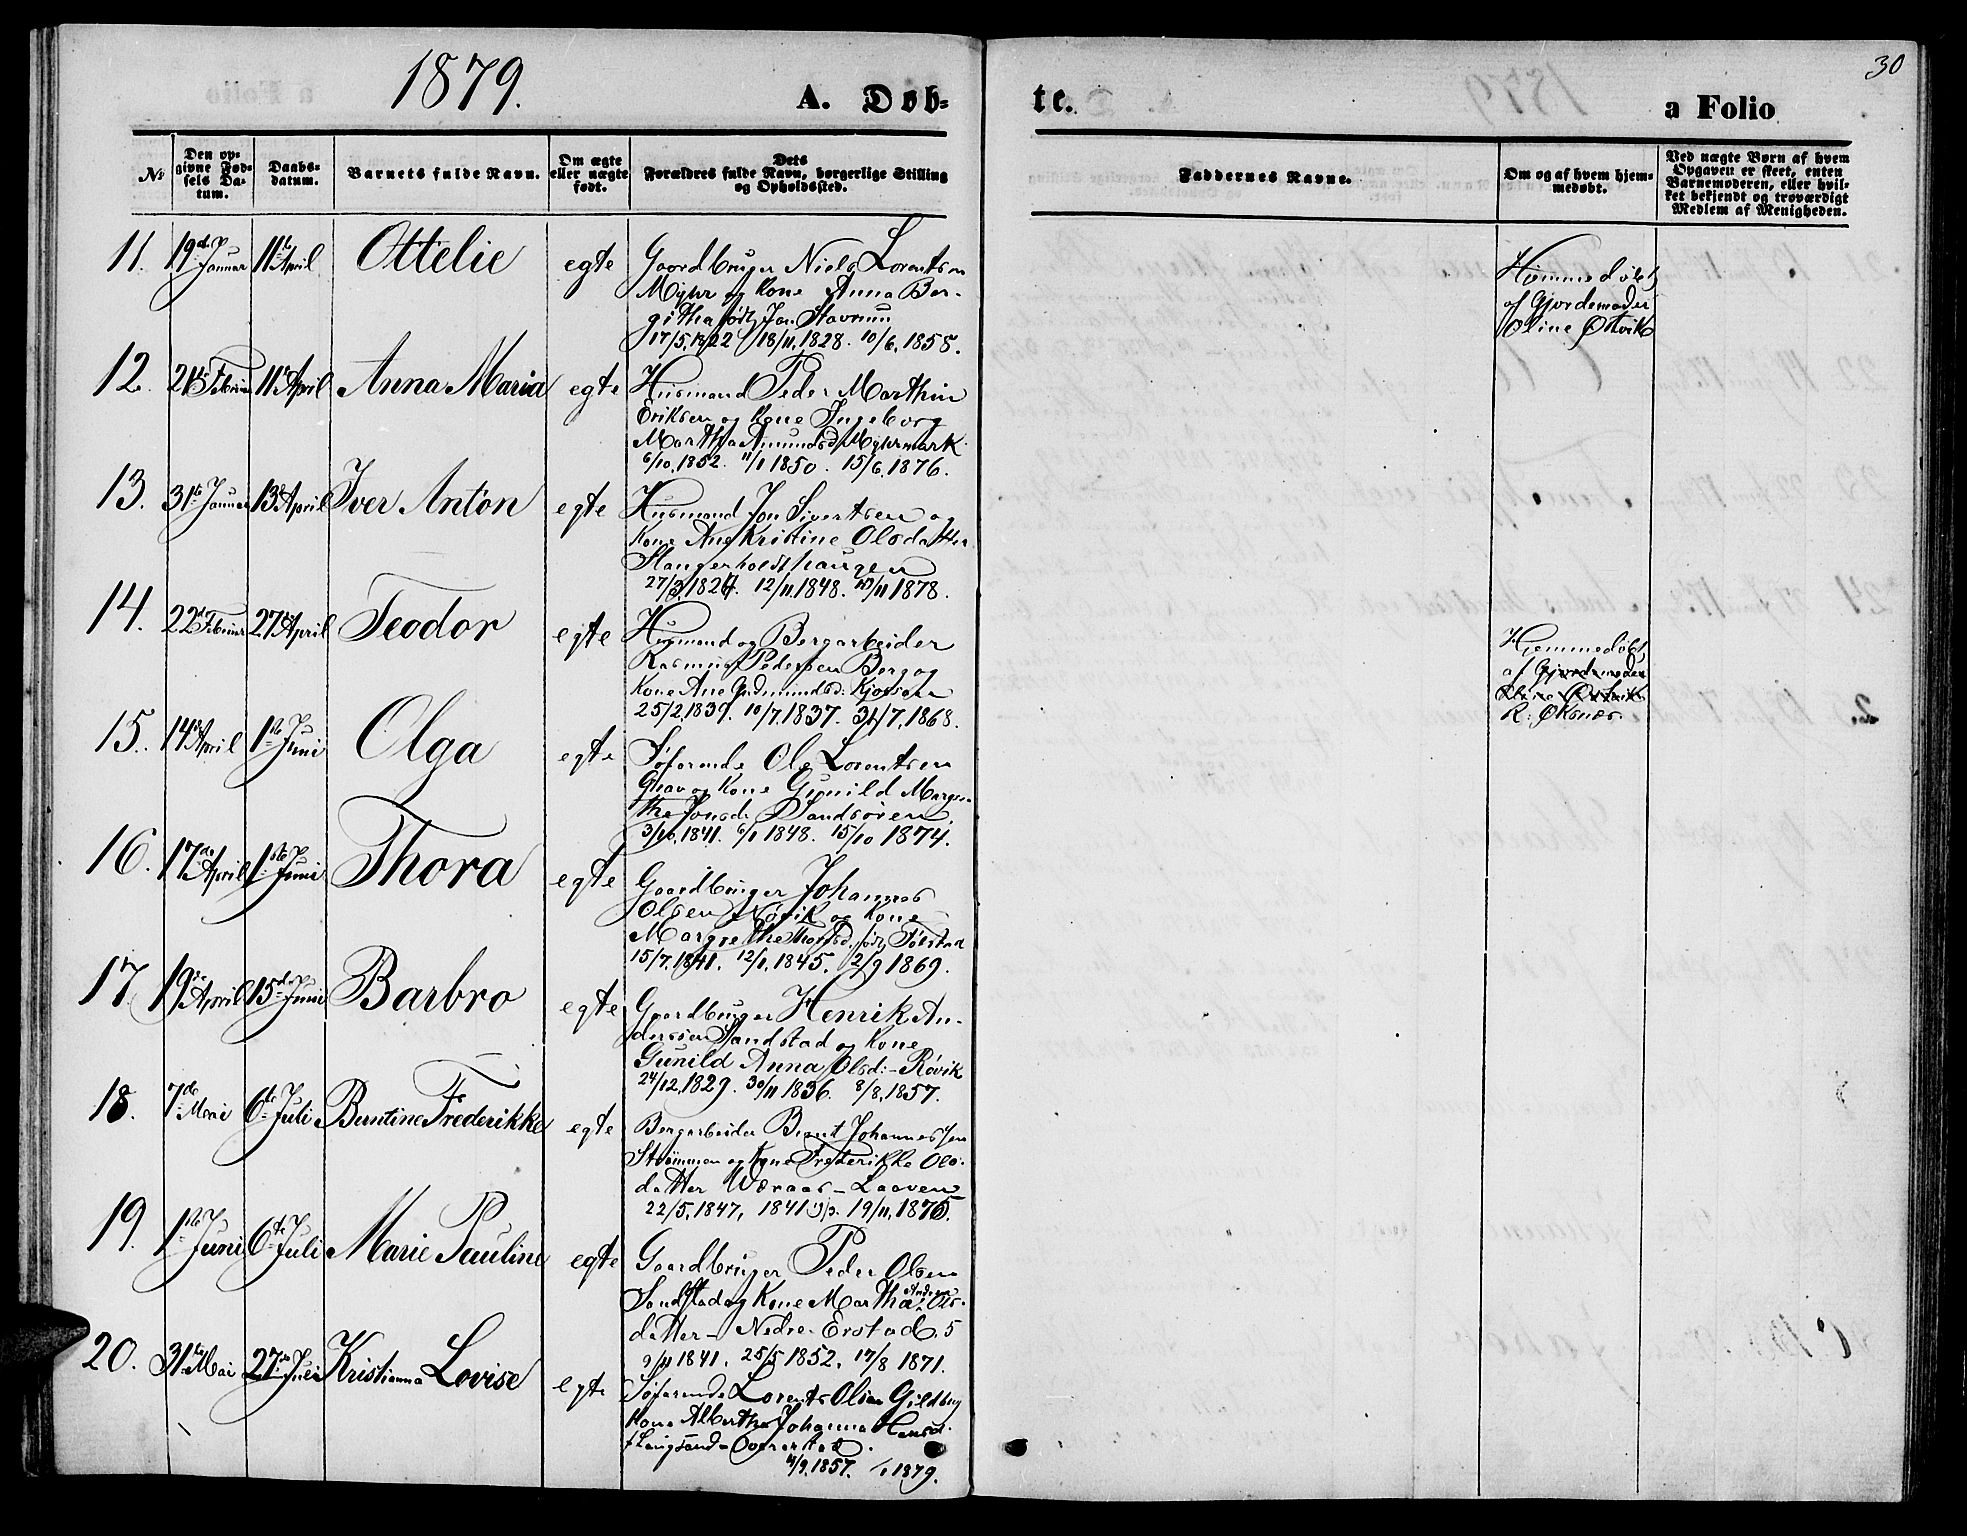 1879.
A. Døb-
te.
a Folio
30
№
Den op-
givne Fød-
sels Da-
tum.
Daabs-
datum.
Barnets fulde Navn.
Om ægte
eller nægte
født.
Dets
Forældres fulde Navn, borgerlige Stilling
og Opholdssted.
Faddernes Navne.
Om og af hvem hjem-
medøbt.
Ved nægte Børn af hvem
Opgaven er skeet, enten
Barnemoderen, eller hvil-
ket bekjendt og troværdigt
Medlem af Menigheden.
11. 19de Januar 11te April Ottelie egte Gaardbruger Niels Lorentsen
Myhr og Kone Anna Ber-
githa født Jon
17/5, 1822 18/11, 1828. 10/6, 1858.
Hjemmedøbt,
af Gjordemoder
Oline
12. 21de Februar 11te April Anna Maria egte Husmand Peder Marthin
Eriksen og Kone Ingeborg
Martha Amundsd. Myhrmark.
6/10, 1852. 11/1 1850. 15/6, 1876.
13. 31te Januar 13de April Iver Anton egte Husmand Jon Sivertsen og
Kone Ane Kristine Olsdatter
Slangerholdthaugen
27/3, 1824. 12/11, 1848. 1878.
14. 22de Februar 27de April Teodor egte Husmand og Bergarbeider
Rasmus Pedersen Berg og
Kone Ane Gudmundsd. Kjossen
25/2, 1839. 10/7, 1837. 31/7, 1868.
Hjemmedøbt,
af Gjordemoder
R. Øksnæs.
15. 14de April 1ste Juni Olga egte Søfarende Ole Lorentsen
Grav og Kone Gunild Margre-
the Jonsd. Sandsøren,
3/10, 1841. 6/1 1848. 15/10 1874.
16. 17de April 1ste Juni Thora egte Gaardbruger Johannes
Olsen Røvik og Kone
Margrethe født Tølstad
15/7, 1841. 12/1, 1845. 2/9 1869.
17. 19de April 15de Juni Barbro egte Gaardbruger Henrik An-
dersen Sandstad og Kone
Gunild Anna Olsd. - Røvik
24/12, 1829. 30/11 1836. 8/8, 1857.
18. 7de Mai 6te Juli Berntine Frederikke egte Bergarbeider Bernt Johannessen
Strømmen og Kone Frederikke Ols-
datter Wæraas - Laaven
22/5, 1847, 1841 19/11, 1875.
19. 1ste Juni 6te Juli Marie Pauline egte Gaardbruger Peder Olsen
Sandstad og Kone Martha Andrea Ols-
datter - Nedre - Erstad. 5
9/11 1841. 25/5 1852. 17/8 1871.
20. 31te Mai 27de Juli Kristianna Lovise egte Søfarende Lorents Olsen Gildberg
Kone Alberthe Johanna Hansd.
f. Langsand - Overerstad.
11/9, 1857. 1879.